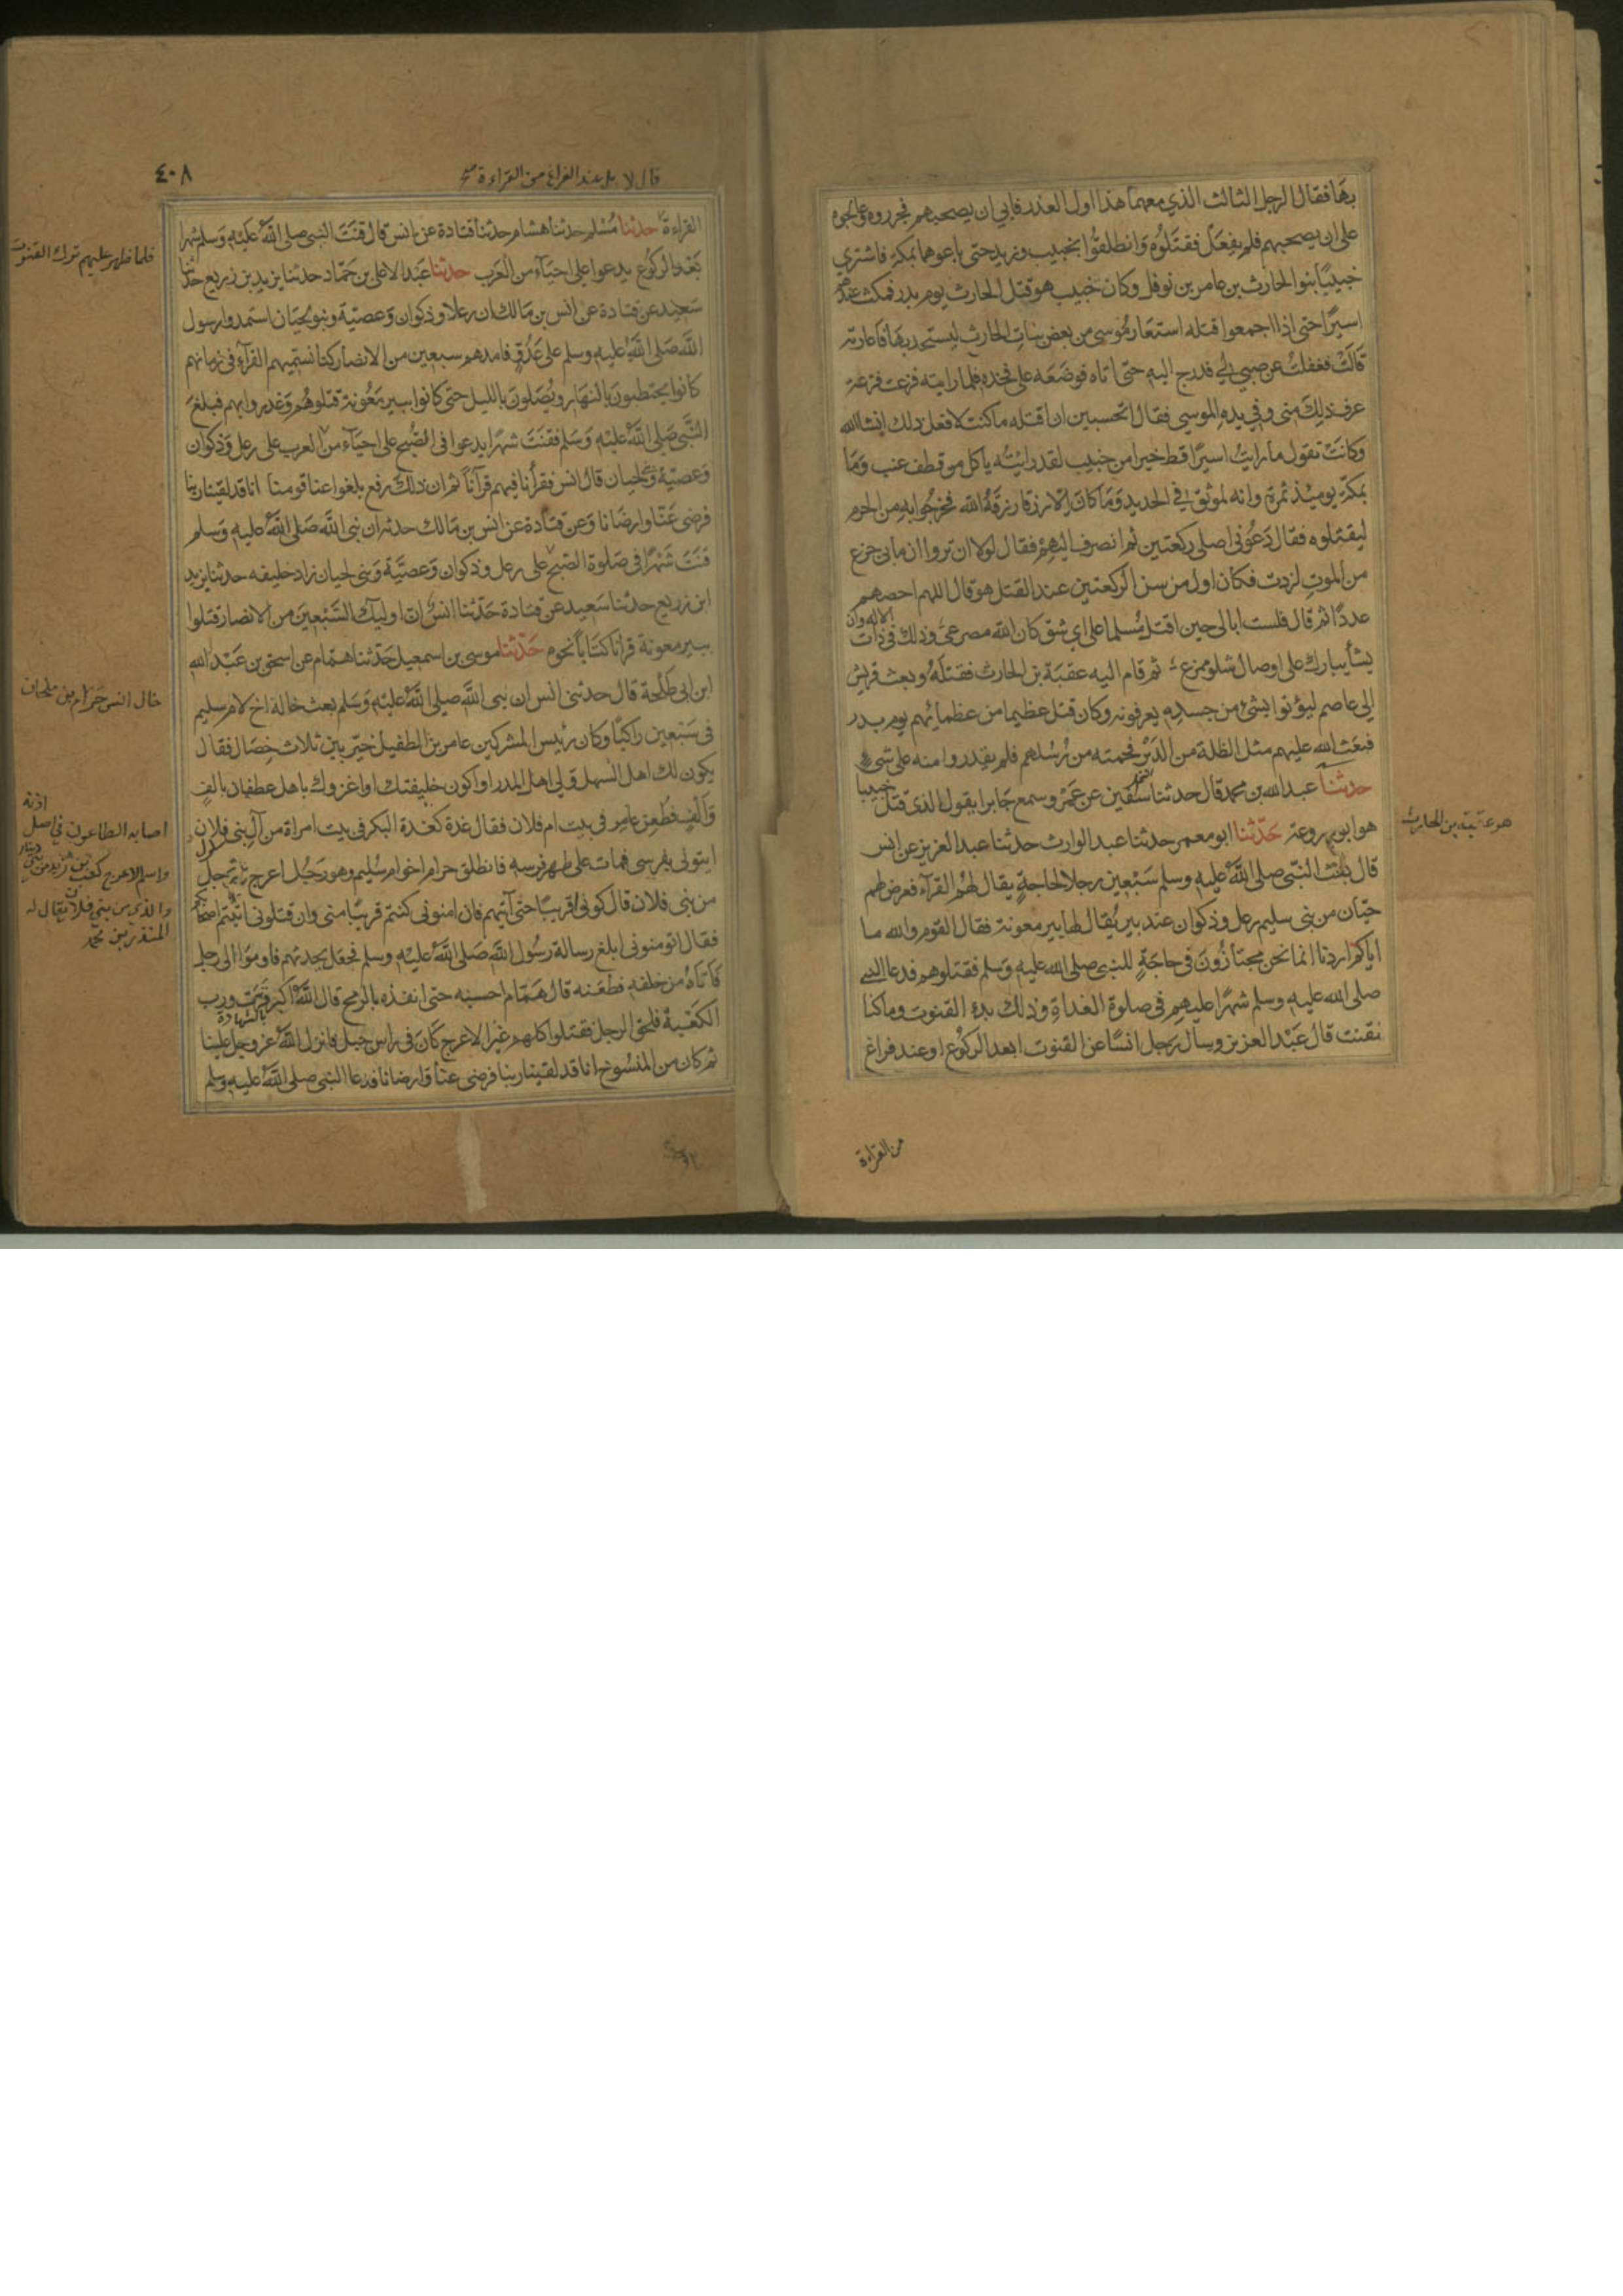 بها فقال الرجل الثالث الذي معهما هذا اول الغدر فابى ان يصحبهم فجرروه وعالجوه
على ان يصحبهم فلم يفعل فقتلوه وانطلقوا بخبيب وزيد حتى باعوهما بمكة فاشترى
خبيبا بنوا الحارث بن عامر بن نوفل وكان خبيب هو قتل الحارث يوم بدر فمكث عندهم
اسيرا حتى اذا اجمعوا قتله استعار موسى من بعض بنات الحارث ليستحد بها فاعارته
قالت فغفلت عن صبي لي فدرج اليه حتى اتاه فوضعه على فخذه فلما رايته فزعت فزعة
عرف ذلك منى وفي يده الموسى فقال اتحسبين ان اقتله ما كنت لافعل ذلك انشاالله
وكانت تقول ما رايت اسيرا قط خيرا من خبيب لقد رايته ياكل من قطف عنب وما
بمكة يومئذ ثمرة وانه لموثق في الحديد وما كان الا رزقا رزقه الله فخرجوا به من الحرم
ليقتلوه فقال دعوني اصلى ركعتين ثم انصرف اليهم فقال لولا ان تروا ان مابي جزع
من الموت لزدت فكان اول من سن الركعتين عند القتل هو قال اللهم احصهم
عددا ثم قال فلست ابالى حين اقتل مسلما على اي شق كان الله مصرعي وذلك في ذات الاله وان
يشأ يبارك على اوصال شلو ممزع ثم قام اليه عقبة بن الحارث فقتله وبعث قريش
الى عاصم ليؤتوا بشئ من جسده يعرفونه وكان قتل عظيما من عظمائهم يوم بدر
فبعث الله عليهم مثل الظلة من الدبر فحمته من رسلهم فلم يقدروا منه على شئ
حدثنا عبد الله بن محمد قال حدثنا سفين عن عمرو سمع جابرا يقول الذى قتل خبيبا
هو ابو سروعة حدثنا ابو معمر حدثنا عبد الوارث حدثنا عبد العزيز عن انس
قال بعث النبي صلى الله عليه وسلم سبعين رجلا لحاجة يقال لهم القرآء فعرض لهم
حيان من بنى سليم رعل وذكوان عند بير يقال لها بير معونة فقال القوم والله ما
اياكم اردنا انما نحن مجتازون في حاجة للنبي صلى الله عليه وسلم فقتلوهم فدعا النبي
صلى الله عليه وسلم شهرا عليهم في صلوة الغداة وذلك بدء القنوت وماكنا
نقنت قال عبد العزيز وسال رجل انسا عن القنوت ابعد الركوع او عند فراغ
من القراءة
هو عقبة بن الحارث
٤٠٨
قال لا بل عند الفراغ من القراءة صح
القراءة حدثنا مسلم حدثنا هشام حدثنا قتادة عن انس قال قنت النبي صلى الله عليه وسلم شهرا
بعد الركوع يدعوا على احيآء من العرب حدثنا عبد الاعلى بن حماد حدثنا يزيد بن زريع حدثنا
سعيد عن قتادة عن انس بن مالك ان رعلا وذكوان وعصية وبنو لحيان استمدوا رسول
الله صلى الله عليه وسلم على عدو فامدهم بسبعين من الانصار كنا نسميهم القرآء في زمانهم
كانوا يحتطبون بالنهار ويصلون بالليل حتى كانوا ببير معونة قتلوهم وغدروا بهم فبلغ
النبي صلى الله عليه وسلم فقنت شهرا يدعوا في الصبح على احيآء من العرب على رعل وذكوان
وعصية ولحيان قال انس فقرأنا فيهم قرآنا ثم ان ذلك رفع بلغوا عنا قومنا انا قد لقينا ربنا
فرضى عنا وارضانا وعن قتادة عن انس بن مالك حدثه ان نبي الله صلى الله عليه وسلم
قنت شهرا في صلوة الصبح على رعل وذكوان وعصية وبنى لحيان زاد خليفه حدثنا يزيد
ابن زريع حدثنا سعيد عن قتادة حدثنا انس ان اوليك السبعين من الانصار قتلوا
ببير معونة قرانا كتابا نحوه حدثنا موسى بن اسمعيل حدثنا همام عن اسحق بن عبد الله
ابن ابى طلحة قال حدثنى انس ان نبي الله صلى الله عليه وسلم بعث خاله اخ لام سليم
في سبعين راكبا وكان رئيس المشركين عامر بن الطفيل خير بين ثلاث خصال فقال
يكون لك اهل السهل ولي اهل المدر او اكون خليفتك او اغزوك باهل غطفان بالف
والف فطعن عامر في بيت ام فلان فقال غدة كغدة البكر في بيت امراة من آل بنى فلان
ايتونى بفرسى فمات على ظهر فرسه فانطلق حرام اخو ام سليم وهو رجل اعرج ورجل
من بنى فلان قال كونوا قريبا حتى آتيهم فان امنونى كنتم قريبا منى وان قتلونى اتيتم اصحابكم
فقال اتومنونى ابلغ رسالة رسول الله صلى الله عليه وسلم فجعل يحدثهم فاومؤا الى رجل
فاتاه من خلفه فطعنه قال همام احسبه حتى انفذه بالرمح قال الله اكبر فزت ورب
الكعبة فلحق الرجل فقتلوا كلهم غير الاعرج كان في راس جبل فانزل الله عز وجل علينا
ثم كان من المنسوخ انا قد لقينا ربنا فرضى عنا وارضانا فدعا النبي صلى الله عليه وسلم
فلما ظهر عليهم ترك القنوت
خال انس حرام بن ملحان
اصابه الطاعون في اصل اذنه
واسم الاعرج كعب بن زيد من بنى دينار
والذي من بني فلان يقال له
المنذر بن محمد
بالشهادة